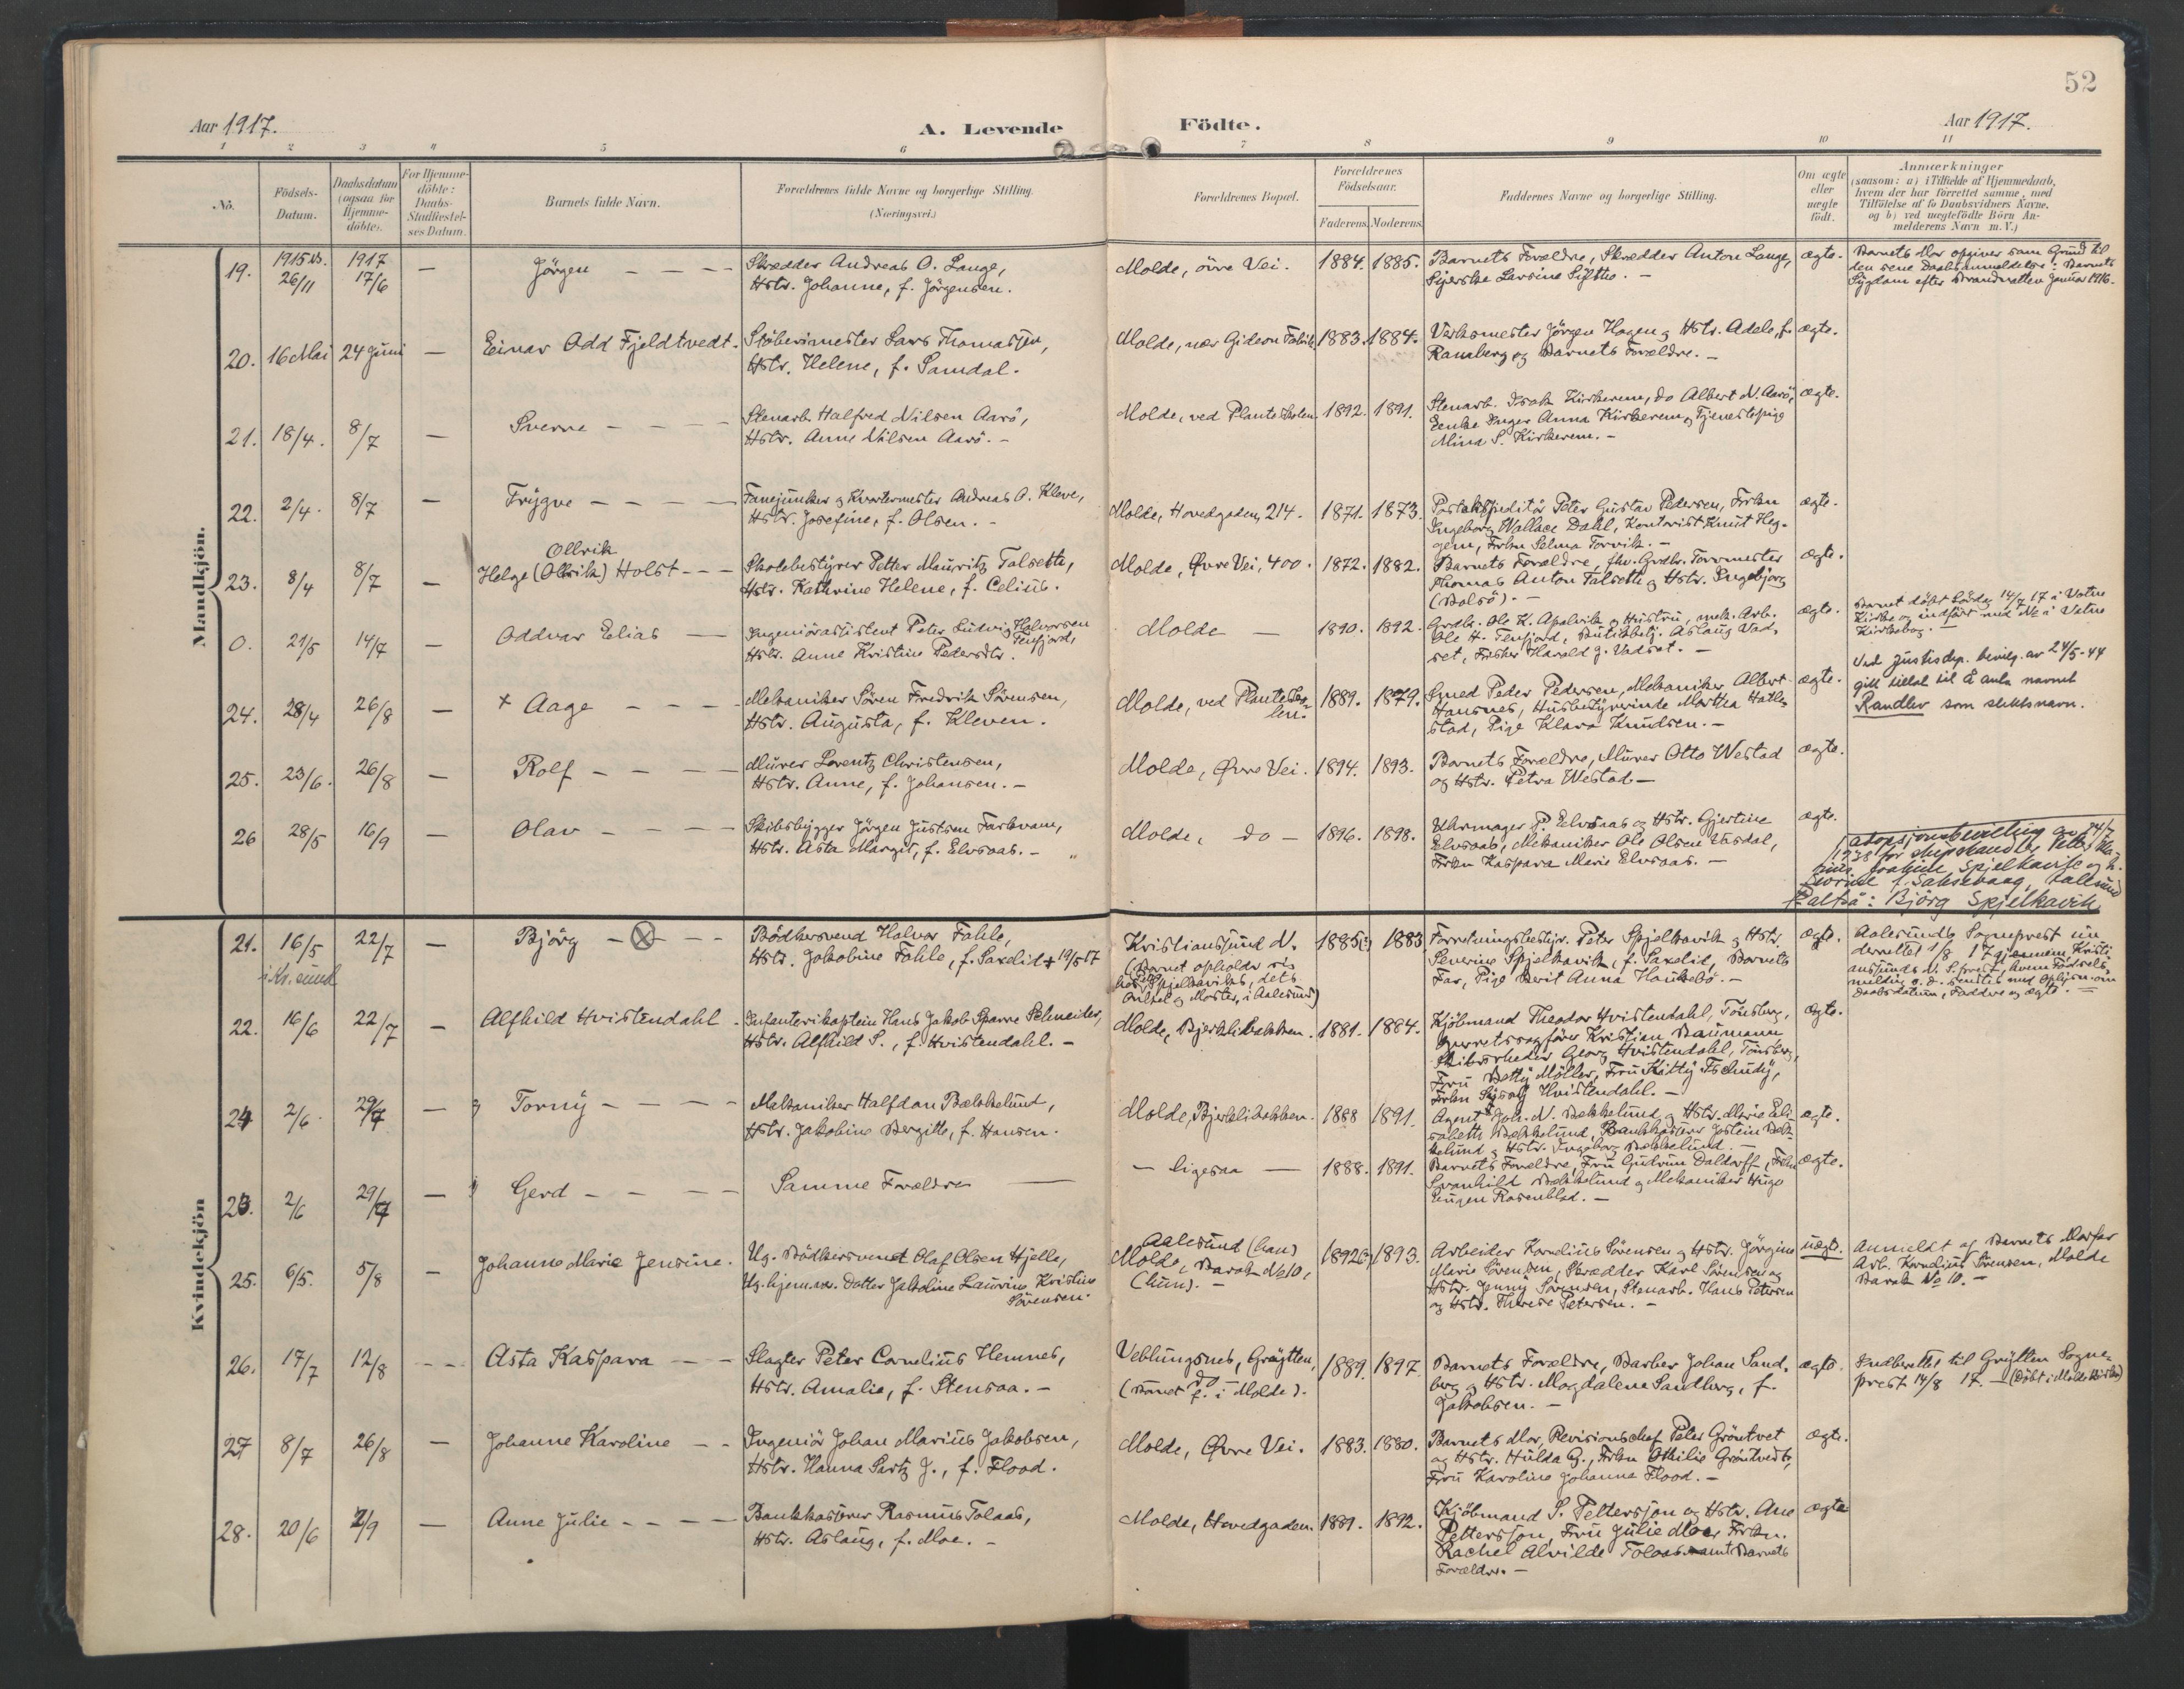 52
Aar 1917.
A. Levende
Födte.
Aar 1917.
1 2 3 4 5 6 7 8 9 10 11
No.
Födsels-
Datum.
Daabsdatum
(ogsaa for
Hjemme-
döbte).
For Hjemme-
döbte:
Daabs-
Stadfæstel-
ses Datum.
Barnets fulde Navn.
Forældrenes fulde Navne og borgerlige Stilling.
(Næringsvei.)
Forældrenes Bopæl.
Forældrenes
Födselsaar.
Faderens. Moderens.
Faddernes Navne og borgerlige Stilling.
Om ægte
eller
uægte
født.
Anmærkninger
(saasom: a) i Tilfælde af Hjemmedaab,
hvem der har forrettet samme, med
Tilföielse af to Daabsvidners Navne,
og b) ved uægtefödte Börn An-
melderens Navn m. V.)
Mandkjön.
19.
26/11
1917
17/6
—
Jörgen - - - -
Skrædder Andreas O. Lange,
Hstr. Johanne, f. Jörgensen.
Molde, övre Vei.
1884. 1885.
Barnets Forældre, Skrædder Anton Lange,
ægte.
Barnets Mor opgiver som Grund til
den sene Daabsanmeldelse: Barnets
Sygdom efter Brandnatten Januar 1916.
20. 16 Mai 24 Juni —
Einar Odd Fjeldtvedt.
Stöberimester Lars Thomassen,
Hstr. Helene, f. Samdal.
Molde, nær Gideon Fabrik
1883. 1884.
Verksmester Jörgen Hagen og Hstr. Adele, f.
Ramberg og Barnets Forældre. —
ægte.
21. 18/4. 8/7 —
Sverre - - - -
Stenarb. Halfred Nilsen Aarö,
Hstr. Anne Nilsen Aarö. —
Molde, ved Planteskolen.
1892. 1891.
Stenarb. Isak Kirkerem, do Albert N. Aarö,
Enke Inger Anna Kirkerem, Tjenestepige
Mina S. Kirkerem. —
ægte.
22. 2/4. 8/7 —
Trygve - - - -
Fanejunker og Kvartermester Andreas A. Kleve,
Hstr. Josefine, f. Olsen. —
Molde, Hovedgaden, 214.
1871. 1873.
Postekspeditör Peter Gustav Pedersen, Frkn
Ingeborg Wallace Dahl, Kontorist Knut Heg-
gem, Frkn Selma Torvik. —
ægte.
23. 8/4 8/7 —
Ollrik
Helge (Olrik) Holst - - -
Skolebestyrer Petter Mauritz Talseth,
Hstr. Kathrine Helene, f. Celius.
Molde, Øvre Vei, 400.
1872. 1882.
Barnets Forældre, fhv. Grdbr. Torvmester
Thomas Anton Talseth og Hstr. Ingeborg
(Bolsö). —
ægte.
0. 21/5 14/7
Oddvar Elias —
Ingeniörassistent Peter Ludvig Halvorsen
Tenfjord,
Hstr. Anne Kristine Pedersdtr.
Molde —
1890. 1892.
Grdbr. Ole K. Apalvik og Hustru, mek. Arb.
Ole H. Tenfjord, Butikbetj. Aslaug Vad-
set, Fisker Harald J. Vadset. —
ægte.
Barnet döbt Lördag 14/7 17 i Vatne
Kirke og indfört med No i Vatne
Kirkebog. —
24. 28/4 26/8 —
+ Aage - - - -
Mekaniker Sören Fredrik Sörensen,
Hstr. Augusta, f. Kleven.
Molde, ved Plantesko-
len.
1889. 1879.
Smed Peder Pedersen, Mekaniker Albert
Hansnes, Husbestyrerinde Martha Hatle-
stad, Pige Klara Knudsen. —
ægte.
Ved Justisdep. bevilg. av 24/5-44
gitt tillat til å anta navnet
Randlev som slektsnavn.
25. 23/6. 26/8 —
Rolf - - - -
Murer Lorentz Christensen,
Hstr. Anne, f. Johansen. —
Molde, Øvre Vei.
1894. 1893.
Barnets Forældre, Murer Otto Westad
og Hstr. Petra Westad —
ægte.
26 28/5 16/9 —
Olav - - - -
Skibsbygger Jörgen Justsen Farkvam,
Hstr. Asta Margit, f. Elvsaas. —
Molde, do —
1896. 1898.
Uhrmager P. Elvsaas og Hstr. Gjertine
Elvsaas, Mekaniker Ole Olsen Uusdal,
Frkn Kaspara Marie Elvsaas. —
ægte.
adopsjonsbevilling av 24/7
1938 for skipshandler Peter Ma-
Spjelkavik og h.
altså: Björg Spjelkavik
Kvindekjön
21. 16/5 22/7 —
i Kr.sund
Björg - ⊗ - -
Bödkersvend Halvor Fahle,
Hstr. Jakobine Fahle, f. Saxelid + 19/5 17
Kristianssund N.
(Barnet opholder sig
hos Spjelkaviks, dets
Onkel og Moster, i Aalesund)
1885(?) 1883
Forretningsbestyr. Peter Spjelkavik og Hstr.
Severine Spjelkavik, f. Saxelid, Barnets
Far, Pige Berit Anna Haukebö. —
ægte.
Aalesunds Sogneprest un
derrettet 1/8 17 gjennem Kristi
ansunds N. S.prest, hvem Födsels-
melding s. d. sendtes med Oplysn om
Daabsdatum, Faddere og ægte. —
22. 16/6 22/7 —
Alfhild Hvistendahl -
Infanterikaptein Hans Jakob Sparre Schneider,
Hstr. Alfhild S., f. Hvistendahl. —
Molde, Bjerklibakken.
1881. 1884.
Kjöbmand Theodor Hvistendahl, Tönsberg,
Overretssagförer Kristian Baumann
Skibsrheder Georg Hvistendahl, Tönsberg,
Fru Betty Möller, Fru Kitty Tschudy,
Frkn Sigvalg Hvistendahl. —
ægte.
24 2/6. 29/7 —
Torny - - - -
Mekaniker Halfdan Bækkelund,
Hstr. Jakobine Bergitte, f. Hansen.
Molde, Bjerklibakken.
1888 1891.
Agent Joh. N. Bækkelund og Hstr. Marie Eli-
sabeth Bækkelund, Bankkasserer Jostein Bæk-
kelund og Hstr. Ingeborg Bækkelund —
ægte.
23. 2/6 29/7 —
Gerd - - - -
Samme Forældre —
— ligesaa —
1888. 1891.
Barnets Forældre, Fru Gudrun Daldorff, Frkn
Svanhild Bækkelund og Mekaniker Hugo
Eugen Rosenblad. —
ægte.
25. 6/5. 5/8 —
Johanne Marie Jensine.
Ug. Bödkersvend Olaf Olsen Hjelle,
Ug. hjem.vær. Datter Jakobine Laurine Kristine
Sörensen.
Aalesund (han)
Molde, Barak No 10,
(hun). —
1892(?) 1893.
Arbeider Kornelius Sörensen og Hstr. Jörgine
Marie Sörensen, Skrædder Karl Sörensen og
Hstr. Jenny Sörensen, Stenarb. Hans Petersen
og Hstr. Therese Petersen. —
uægte.
Anmeldt af Barnets Morfar
Arb. Kornelius Sörensen, Molde
Barak No 10. —
26. 17/7 12/8 - -
Asta Kaspara - -
Slagter Peter Cornelius Hemnes,
Hstr. Amalie, f. Stensaa. —
Veblungsnes, Grytten,
(Barnet f. i Molde).
1889. 1897
Barnets Forældre, Barber Johan Sand-
berg og Hstr. Magdalena Sandberg, f.
Jakobsen. —
ægte.
Indberettet til Grytten Sogne-
prest 14/8 17. — (Döbt i Molde Kirke)
27 8/7 26/8 —
Johanne Karoline - -
Ingeniör Johan Marius Jakobsen,
Hstr. Hanna Sartz J., f. Flood.
Molde, Øvre Vei.
1883. 1880.
Barnets Mor, Revisionschef Peter Gröntvet
og Hstr. Hulda G., Frkn Othilie Gröntvedt,
Fru Karoline Johanna Flood. —
ægte.
28. 20/6 2/9 —
Anne Julie - - - -
Bankkasserer Rasmus Tolaas,
Hstr. Aslaug, f. Moe. —
Molde, Hovedgaden.
1889. 1892.
Kjöbmand S. Pettersson og Hstr. Ane
Pettersson, Fru Julie Moe, Frkn.
Rachel Alvilde Tolaas samt Barnets
Forældre. —
ægte